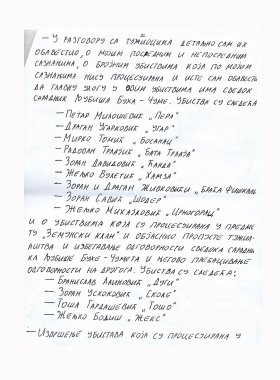 — У РАЗГОВОРУ СА ТУЖИОЦИМА ДЕТАЉНО САМ ИХ
ОБАВЕСТИО, О МОЈИМ ПОСРЕДНИМ И НЕПОСРЕДНИМ
САЗНАЊИМА, О БРОЈНИМ УБИСТВИМА КОЈА ПО МОЈИМ
САЗНАЊИМА НИСУ ПРОЦЕСУИРАНА И ИСТЕ САМ ОБАВЕСТИО
ДА ГЛАВНУ УЛОГУ У ОВИМ УБИСТВИМА ИМА СВЕДОК
САРАДНИК ЉУБИША БУХА - ЧУМЕ. УБИСТВА СУ СЛЕДЕЋА
— ПЕТАР МИЛОШЕВИЋ „ПЕРА"
— ДРАГАН УГАРКОВИЋ „УГАР"
— МИРКО ТОМИЋ „БОСАНАЦ"
— РАДОВАН ТРЛАЈИЋ „БАТА ТРЛАЈА"
— ЗОРАН ДАВИДОВИЋ „ЋАНДА"
— ЖЕЉКО ВУЛЕТИЋ „ХАМЗА"
— ЗОРАН И ДРАГАН ЖИВКОВИЋИ „БРАЋА
— ЗОРАН САВИЋ „ШОДЕР"
— ЖЕЉКО МИХАЈЛОВИЋ „ЦРНОГОРАЦ"
И О УБИСТВИМА КОЈА СУ ПРОЦЕСУИРАНА У ПРЕДМЕ
ТУ „ЗЕМУНСКИ КЛАН" И ОБЈАСНИО ПРОПУСТЕ ТУЖИЛА
ШТВА И ИЗБЕГАВАЊЕ ОДГОВОРНОСТИ СВЕДОКА САРАДНИ
КА ЉУБИШЕ БУХЕ - ЧУМЕТА И ЊЕГОВО ПРЕБАЦИВАЊЕ
ОДГОВОРНОСТИ НА ДРУГОГА. УБИСТВА СУ СЛЕДЕЋА:
— БРАНИСЛАВ ЛАИНОВИЋ „ДУГИ"
— ЗОРАН УСКОКОВИЋ „СКОЛЕ"
— ТОША ГАРДАШЕВИЋ „ТОШО"
— ЖЕЉКО БОДИШ „ЖЕКС"
— ИЗВРШЕЊЕ УБИСТАВА КОЈА СУ ПРОЦЕСУИРАНА У